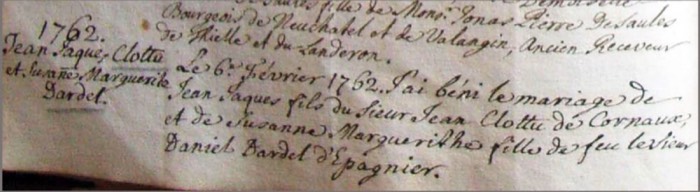 fille de Monsr. Jonas Pierre DeSaules
Bourgeois de Neuchatel et de Valangin, Ancien Receveur
de Thielle et du Landeron.
1762.
Jean Jaques Clottu
et Susane Marguerite
Dardel.
Le 6e. Février 1762. J'ai béni le mariage de
Jean Jaques fils du Sieur Jean Clottu de Cornaux,
et de Susanne Marguerithe fille de feu le Sieur
Daniel Dardel d'Epagnier.